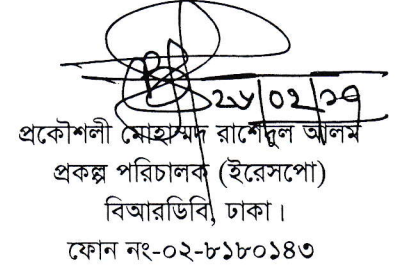 ২৮/০২/১৭
প্রকৌশলী মোহাম্মদ রাশেদুল আলম
প্রকল্প পরিচালক (ইরেসপো)
বিআরডিবি, ঢাকা।
ফোন নং-০২-৮১৮০১৪৩